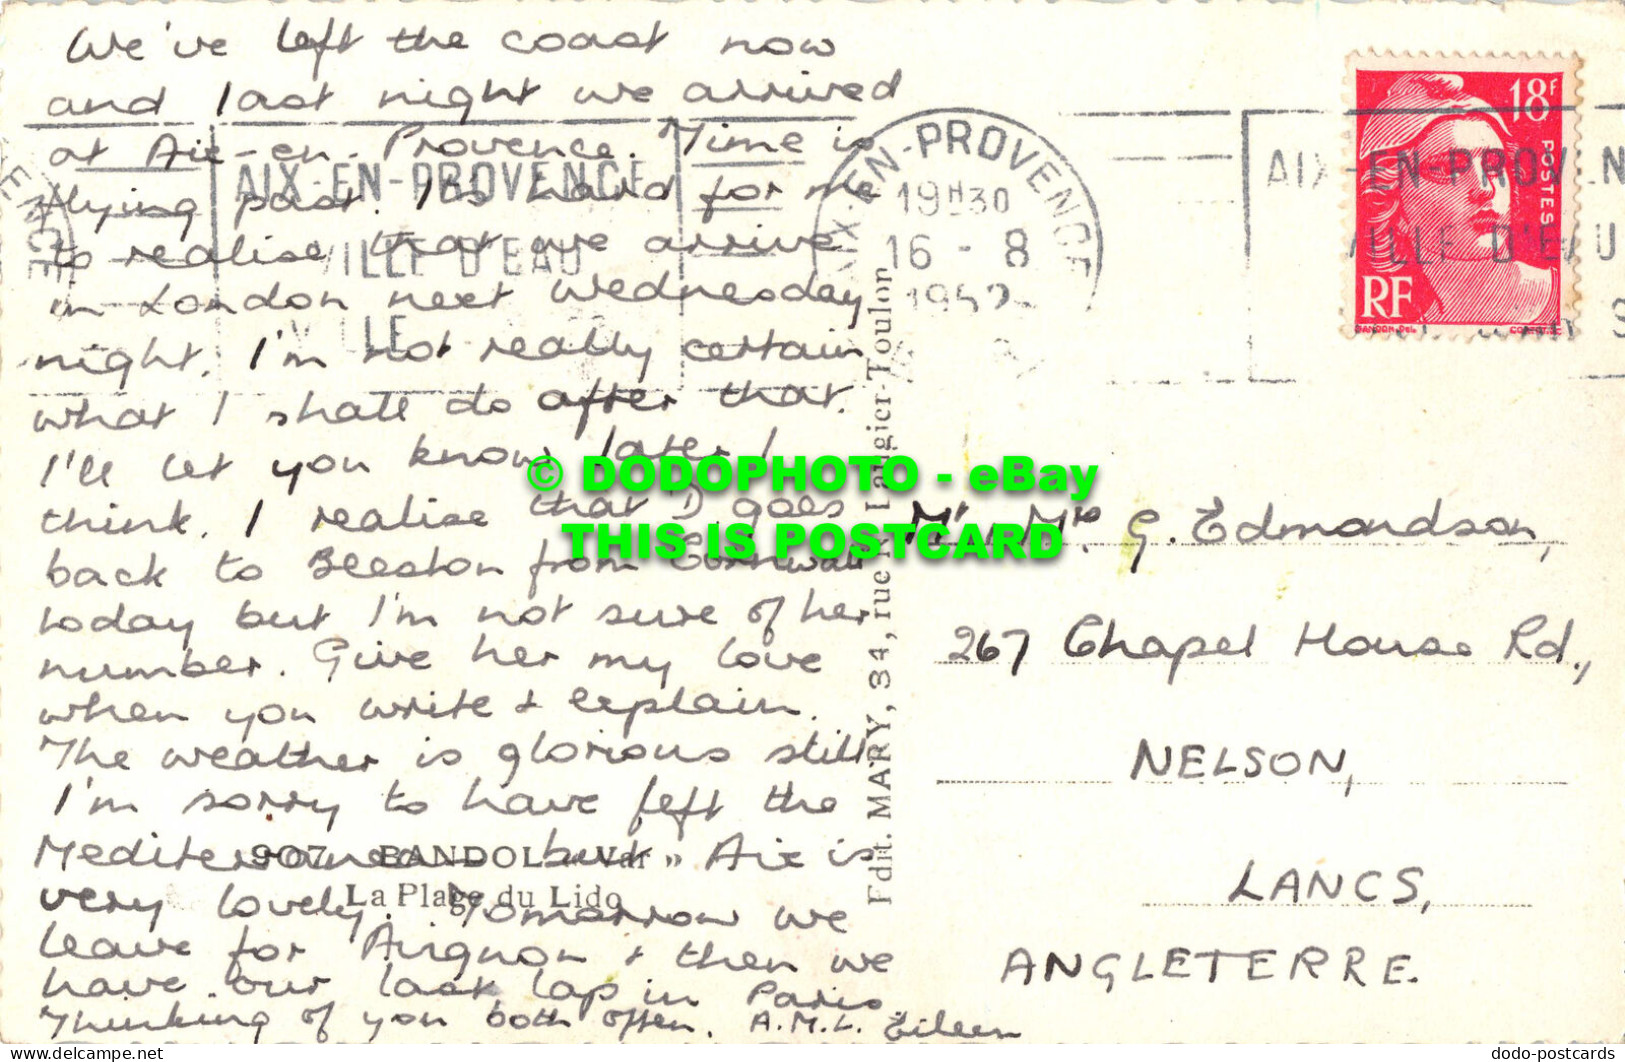 We've left the coast now
and last night we arrived
at Aix-en-Provence. Time is
flying past. It's hard for me
to realise that we arrive
in London next Wednesday
night. I'm not really certain
what I shall do after that.
I'll let you know later I
think. I realise that D. goes
back to Beeston from Cornwall
today but I'm not sure of her
number. Give her my love
when you write & explain.
The weather is glorious still
I'm sorry to have left the
Mediterranean but Aix is
very lovely. Tomorrow we
leave for Avignon & then we
have our last lap in Paris
Thinking of you both often. A.M.L. Eileen
907 BANDOL « Var »
La Plage du Lido
Edit. MARY, 34, rue Laugier-Toulon
AIX-EN-PROVENCE
VILLE D'EAU
VILLE
AIX-EN-PROVENCE
19H30
16 - 8
1952
18F
POSTES
RF
AIX-EN-PROVEN
VILLE D'EAU
Mr. & Mrs. G. Edmondson,
267 Chapel House Rd.,
NELSON,
LANCS,
ANGLETERRE.
© DODOPHOTO - eBay
THIS IS POSTCARD
dodo-postcards